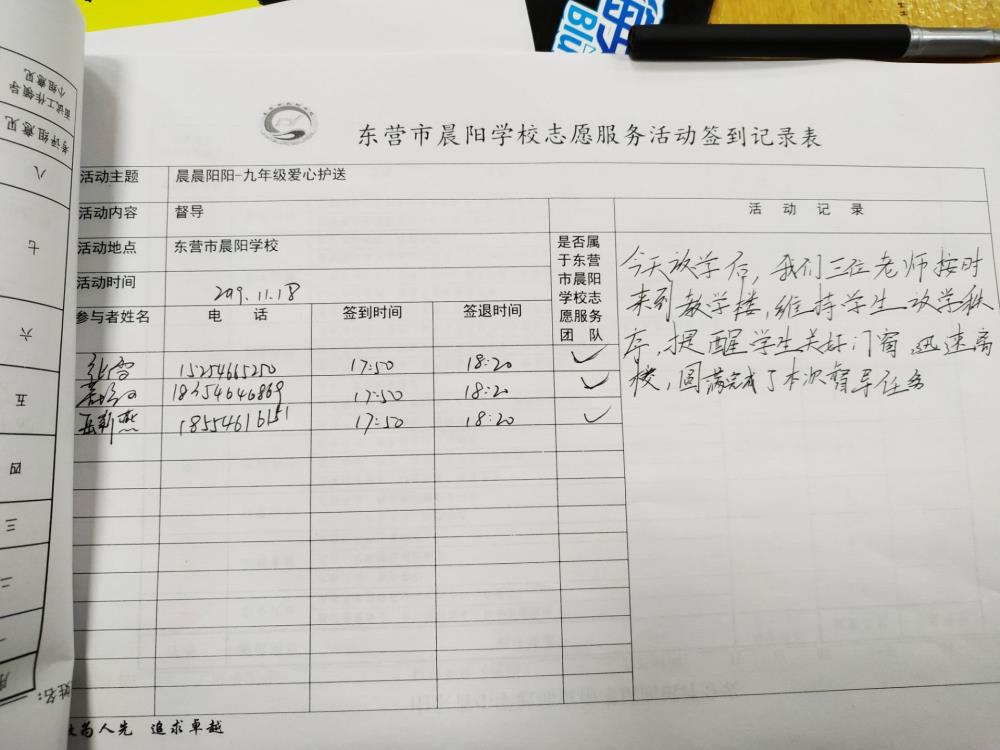 东营市晨阳学校志愿服务活动签到记录表
活动主题 晨晨阳阳-九年级爱心护送
活动内容 督导
活动地点 东营市晨阳学校
活动时间 2019.11.18
是否属
于东营
市晨阳
学校志
愿服务
团 队
活 动 记 录
参与者姓名 电 话 签到时间 签退时间
15254665250 17:50 18:20 ✓
18254646869 17:50 18:20 ✓
18554616151 17:50 18:20 ✓
今天放学后，我们三位老师按时
来到教学楼，维持学生放学秩
序，提醒学生关好门窗，迅速离
校，圆满完成了本次督导任务
为人先 追求卓越
面试工作领导
小组意见
考评组意见
八
七
六
五
四
三
二
一
姓名：
Blu